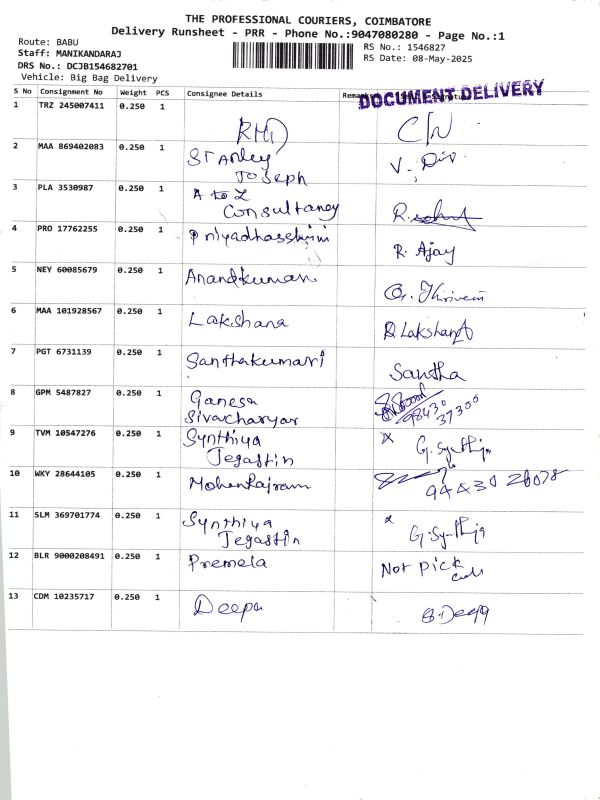 THE PROFESSIONAL COURIERS, COIMBATORE
Delivery Runsheet - PRR - Phone No.:9047080280 - Page No.:1
Route: BABU
Staff: MANIKANDARAJ
RS No.: 1546827
DRS No.: DCJB154682701
RS Date: 08-May-2025
Vehicle: Big Bag Delivery
DOCUMENT DELIVERY
S No Consignment No Weight PCS Consignee Details
1 TRZ 245007411 0.250 1 C/N
2 MAA 869402083 0.250 1 Stanley
Joseph
3 PLA 3530987 0.250 1 A to Z
Consultancy
4 PRO 17762255 0.250 1 R. Ajay
5 NEY 60085679 0.250 1 Anandkumar
6 MAA 101928567 0.250 1 Lakshana Lakshana
7 PGT 6731139 0.250 1 Santhakumari Santha
8 GPM 5487827 0.250 1 Ganesa
Sivacharyar 98430
37300
9 TVM 10547276 0.250 1 Synthiya
Jegastin
10 WKY 28644105 0.250 1
11 SLM 369701774 0.250 1 Synthiya
Jegastin
12 BLR 9000208491 0.250 1 Premela Not Pick
13 CDM 10235717 0.250 1 Deepa